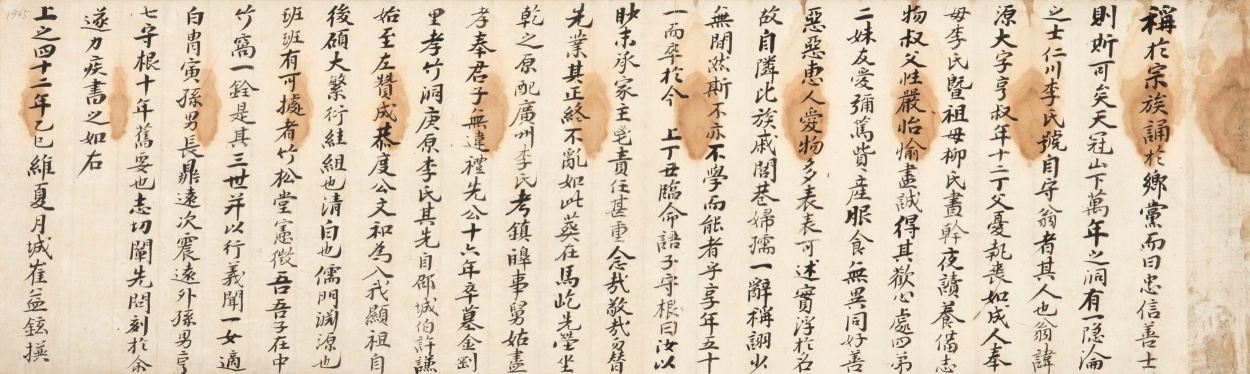 稱於宗族誦於鄉黨而曰忠信善士
則斯可矣天冠山下萬年之洞有一隐淪
之士仁川李氏號自守翁者其人也翁諱
源大字亨叔年十二丁父憂執喪如成人奉
母李氏暨祖母柳氏晝幹夜讀養備志
物叔父性嚴怡愉盡誠得其歡心處四弟
二妹友愛彌篤貲產服食無異同好善
惡惡惠人愛物多表表可述實浮於名
故自隣比族戚閭巷婦孺一辭稱詡少
無間然斯不亦不學而能者乎享年五十
一而卒於今 上丁丑臨命語子守根曰汝以
眇末承家主鬯責任甚重念哉敬哉勿替
先業其正終不亂如此葬在馬屹先塋坐
乾之原配廣州李氏考鎮皥事舅姑盡
孝奉君子無違禮先公十六年卒墓金剛
里孝竹洞庚原李氏其先自邵城伯許謙
始至左贊成恭度公文和為入我顯祖自
後碩大繁衍絓組也清白也儒門淵源也
班班有可據者竹松堂憲徵吾吾子在中
竹窩一銓是其三世并以行義聞一女適
白胄寅孫男長鼎遠次震遠外孫男亨
七守根十年舊要也志切闡先問刻於余
遂力疾書之如右
上之四十二年乙巳維夏月城崔益鉉撰
1905